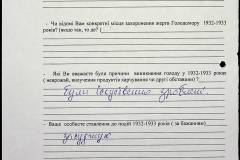 - Чи відомі Вам конкретні місця захоронення жертв Голодомору 1932-1933
років? (якщо так, то де? (
- Які Ви вважаєте були причини виникнення голоду у 1932-1933 роках
( неврожай, вилучення продуктів харчування чи другі обставини) ?
були іскуствено зроблені.
- Ваше особисте ставлення до подій 1932-1933 років ( за бажанням)
засуджую